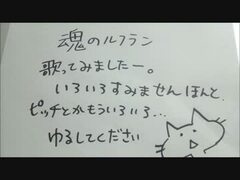 魂のルフラン
歌ってみましたー。
いろいろすみませんほんと、
ピッチとかもういろいろ…
ゆるしてください